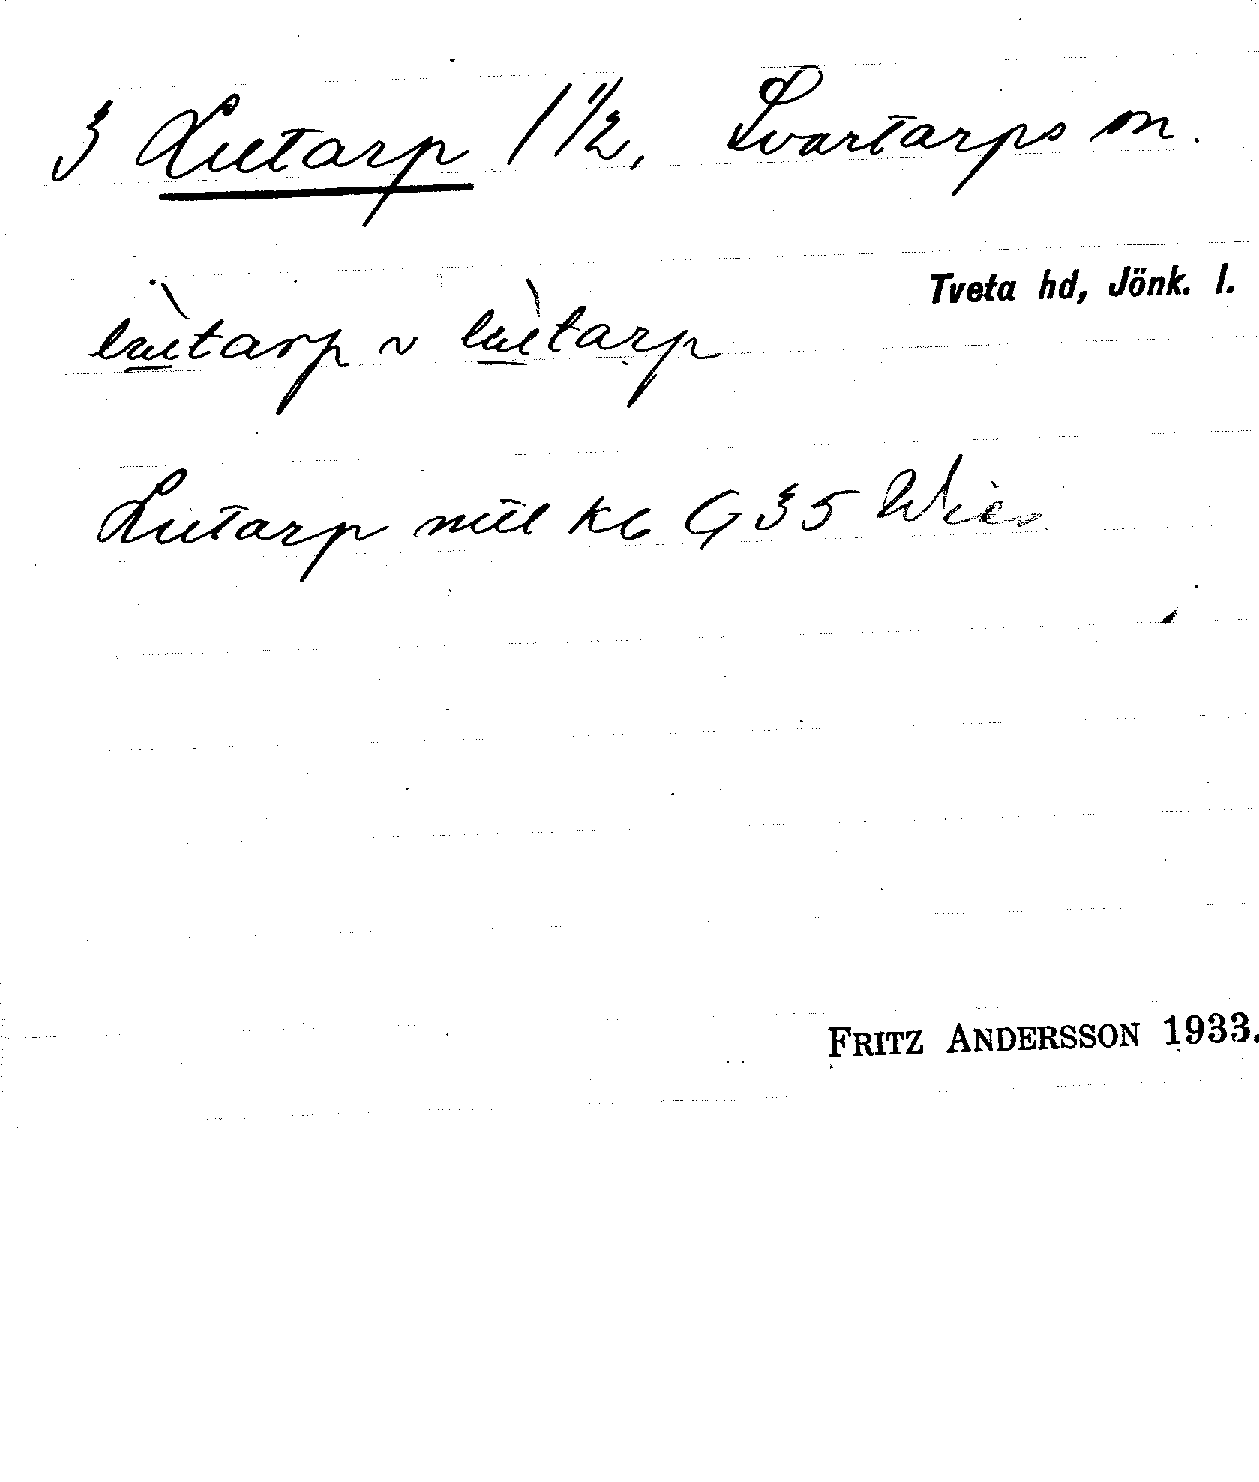 3 Lutarp 1 1/2, Svartarps sn.
Tveta hd, Jönk. l.
lùtarp ~ lùtarp
Lutarp mtl kb G35 Wies
FRITZ ANDERSSON 1933.